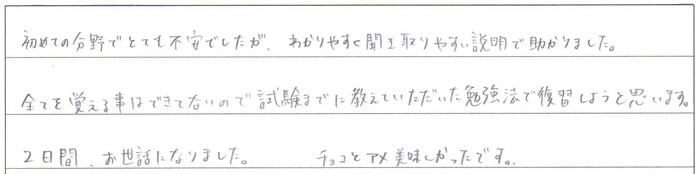 初めての分野でとても不安でしたが、わかりやすく聞き取りやすい説明で助かりました。
全てを覚える事はできてないので試験までに教えていただいた勉強法で復習しようと思います。
2日間、お世話になりました。　チョコとアメ美味しかったです。